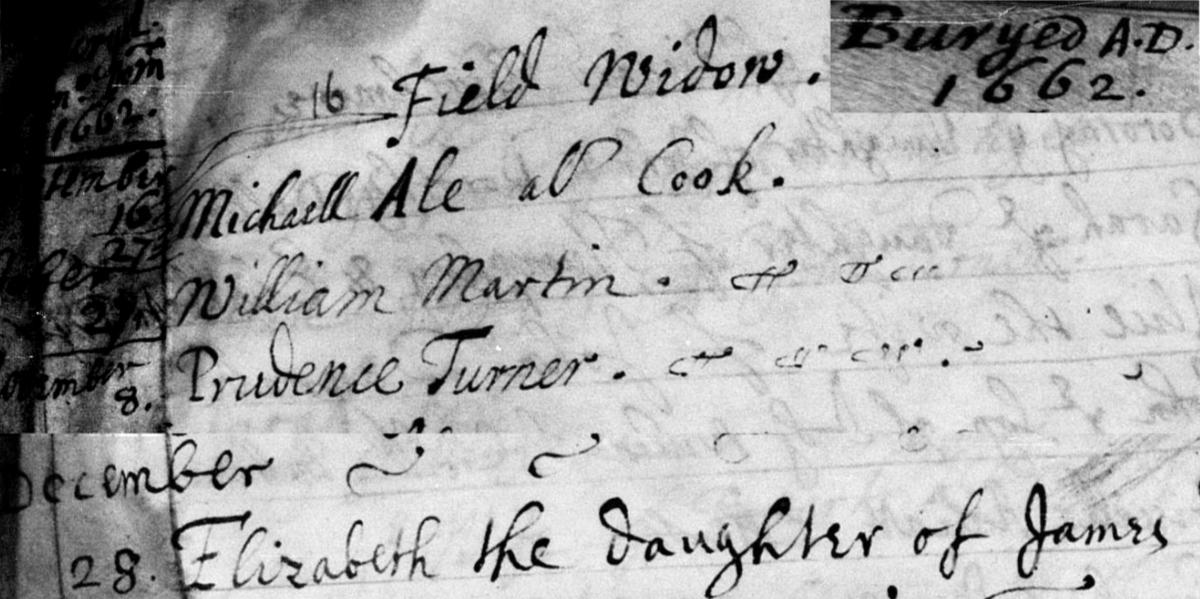 Buryed A.D.
1662.
1662.
16 Field Widow.
16 Michaell Ale als Cook.
27
29 William Martin.
8. Prudence Turner.
December
28. Elizabeth the daughter of James